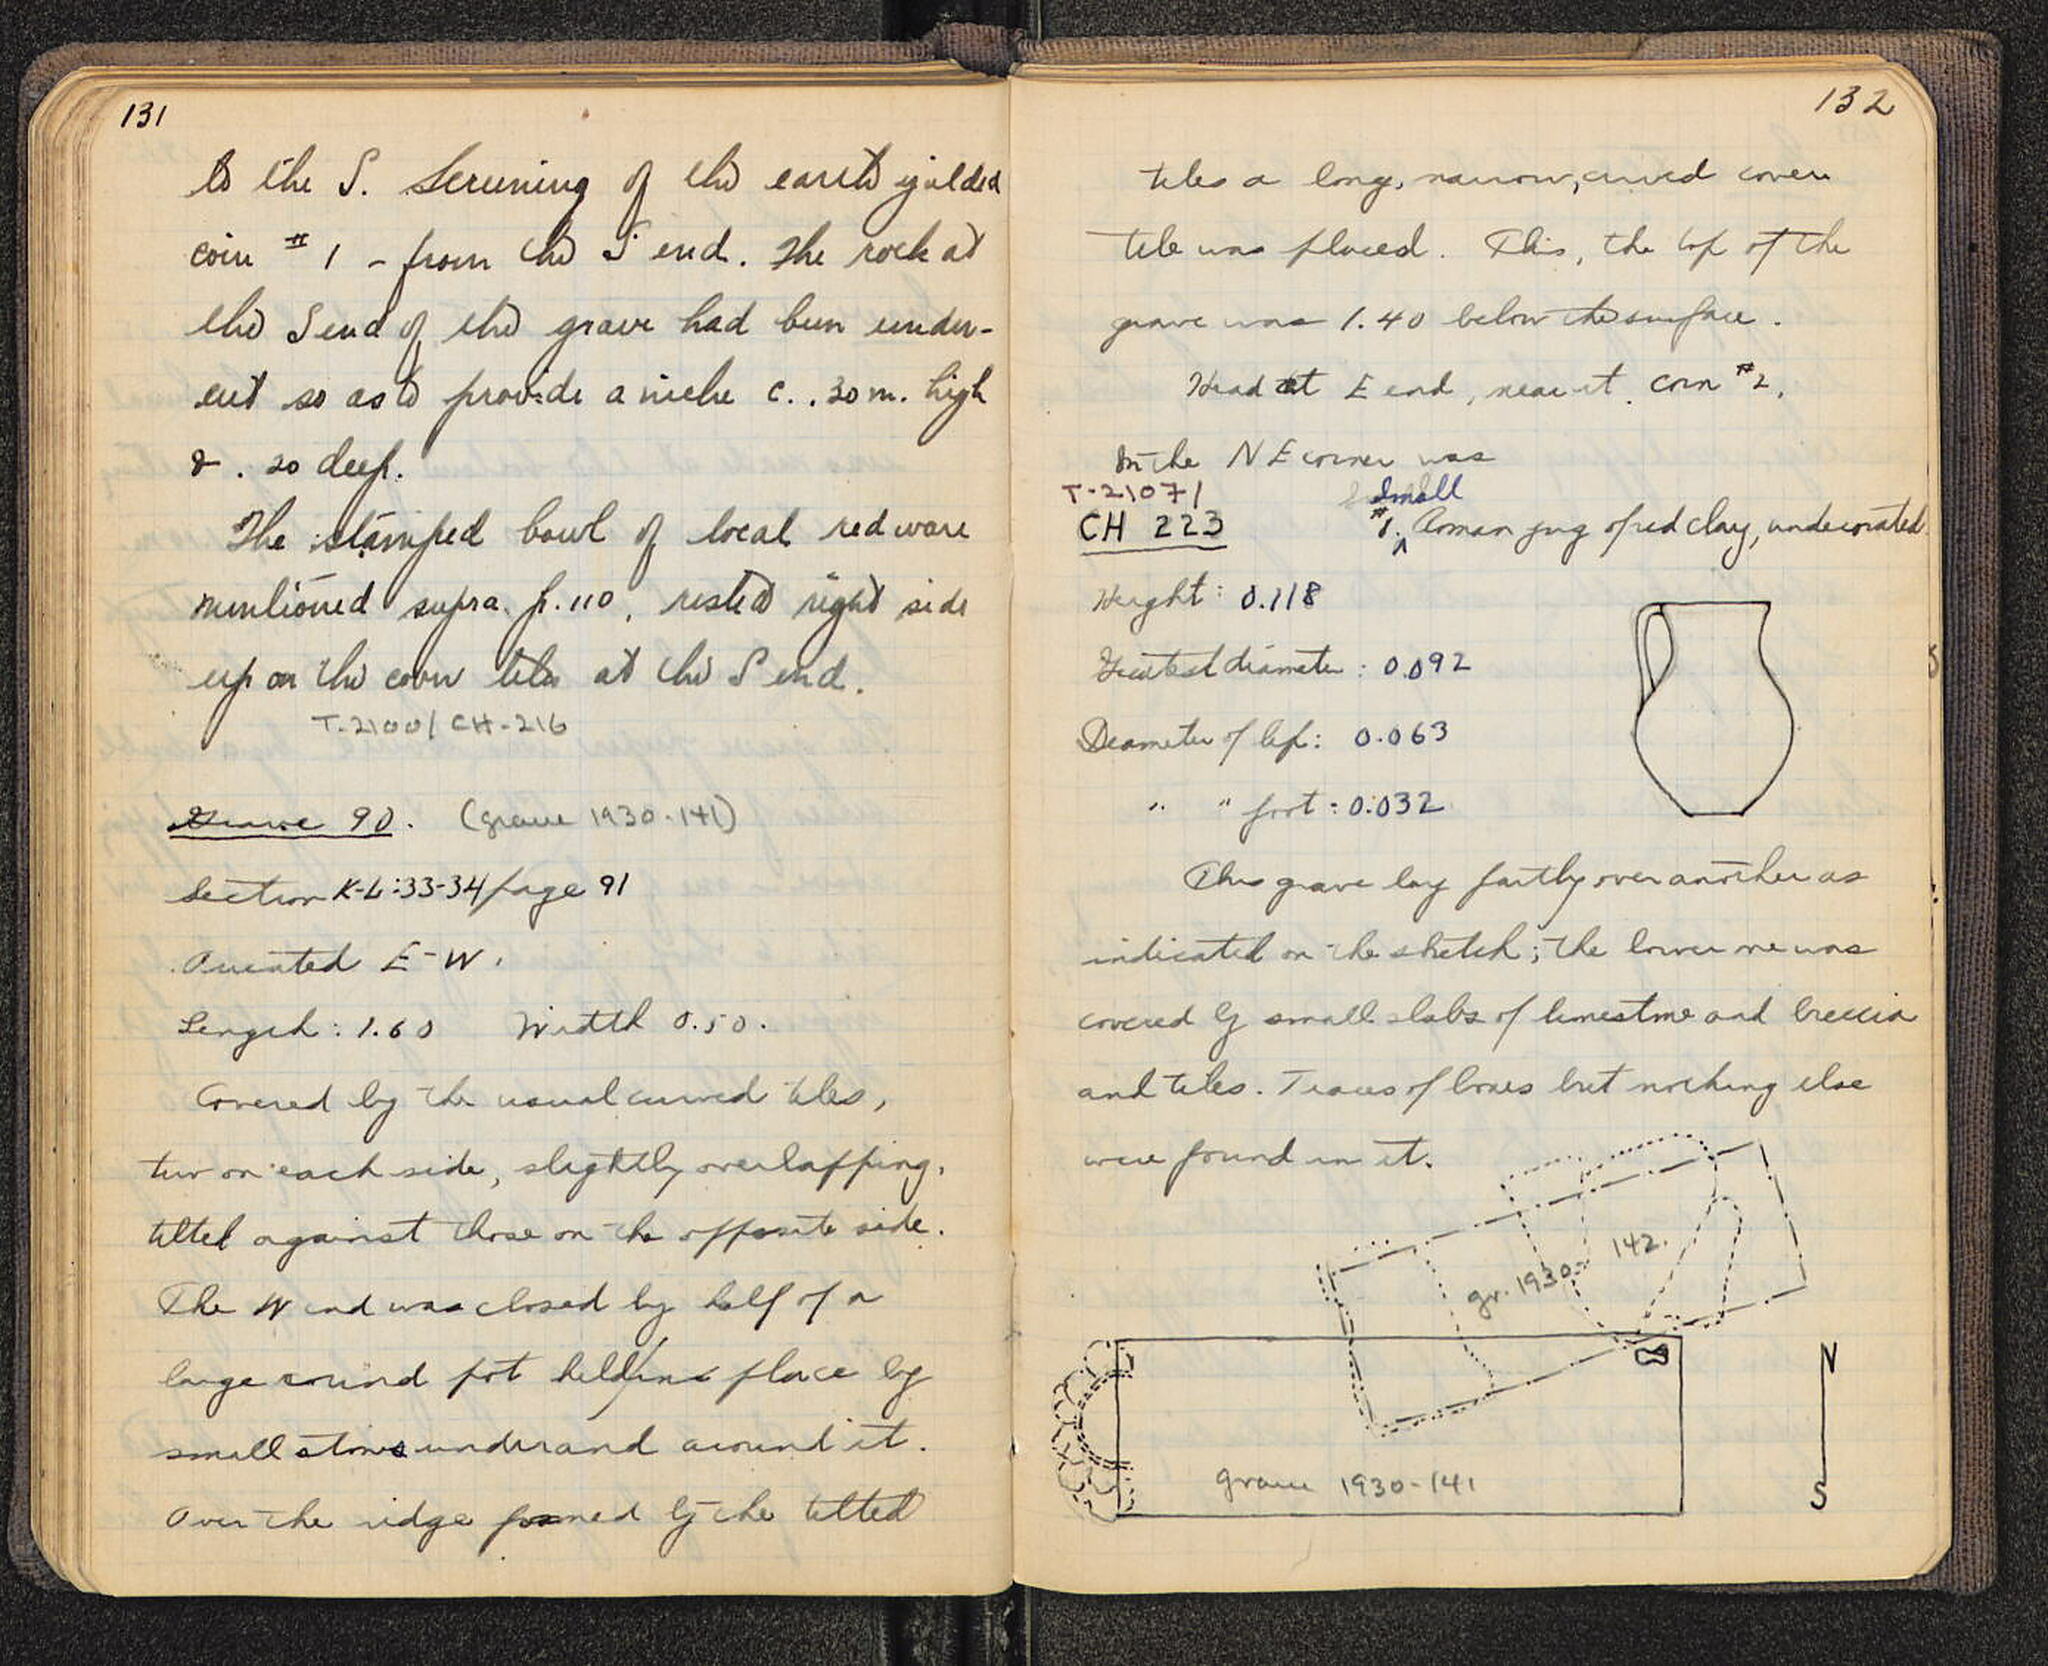 131
to the S. Screening of the earth yielded
coin #1 - from the S end. The rock at
the S end of the grave had been under-
cut so as to provide a niche c. .30 m. high
& .20 deep.
The stamped bowl of local red ware
mentioned supra p. 110, rested right side
up on the cover tiles at the S end.
T-2100/CH-216
Grave 90. (grave 1930-141)
Section K-L:33-34/page 91
Oriented E-W.
Length: 1.60 Width 0.50.
Covered by the usual curved tiles,
two on each side, slightly overlapping,
tilted against those on the opposite side.
The W end was closed by half of a
large round pot held in place by
small stones under and around it.
Over the ridge formed by the tilted
132
tiles a long, narrow, curved cover
tile was placed. This, the top of the
grave was 1.40 below the surface.
Head at E end, near it coin #2.
In the NE corner was
T-2107/
CH 223
Small
#1. Roman jug of red clay, undecorated
Height: 0.118
Greatest diameter: 0.092
Diameter of lip: 0.063
" " foot: 0.032
This grave lay partly over another as
indicated on the sketch; the lower one was
covered by small slabs of limestone and breccia
and tiles. Traces of bones but nothing else
were found in it.
gr. 1930- 142.
N
grave 1930-141
S